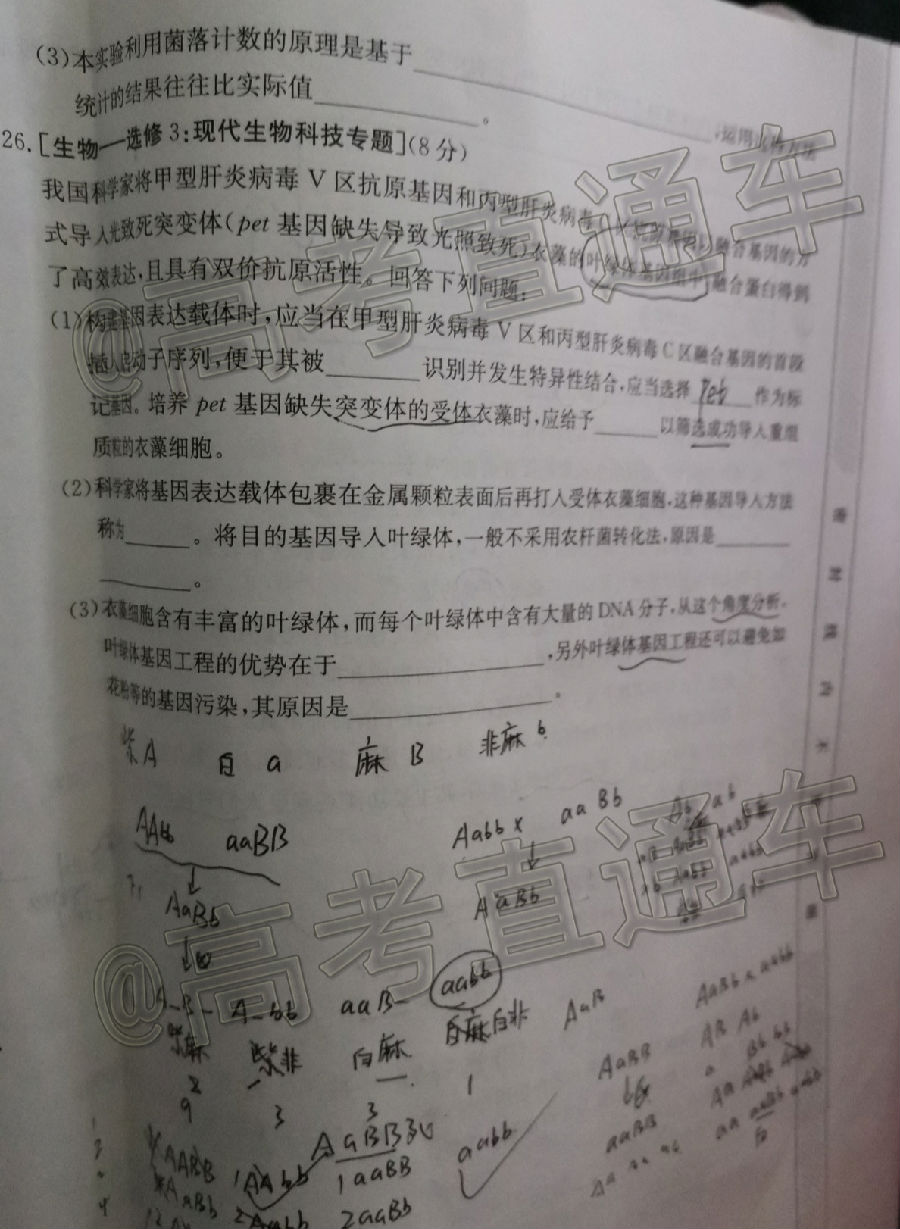 (3)本实验利用菌落计数的原理是基于____________,运用此种方法
统计的结果往往比实际值____________。
26.[生物—选修3:现代生物科技专题](8分)
我国科学家将甲型肝炎病毒V区抗原基因和丙型肝炎病毒C区抗原基因以融合基因的方
式导入光致死突变体(pet基因缺失导致光照致死)衣藻的叶绿体基因组中,融合蛋白得到
了高效表达,且具有双价抗原活性。回答下列问题:
(1)构建基因表达载体时,应当在甲型肝炎病毒V区和丙型肝炎病毒C区融合基因的首段
插入启动子序列,便于其被________识别并发生特异性结合,应当选择 Pet 作为标
记基因。培养pet基因缺失突变体的受体衣藻时,应给予______以筛选成功导入重组
质粒的衣藻细胞。
(2)科学家将基因表达载体包裹在金属颗粒表面后再打入受体衣藻细胞,这种基因导入方法
称为______。将目的基因导入叶绿体,一般不采用农杆菌转化法,原因是______
________。
(3)衣藻细胞含有丰富的叶绿体,而每个叶绿体中含有大量的DNA分子,从这个角度分析,
叶绿体基因工程的优势在于________________,另外叶绿体基因工程还可以避免如
花粉等的基因污染,其原因是________________。
紫A 白 a 麻 B 非麻 b
AAbb aaBB Aabb x aaBb Ab ab
AaBb AaBb
A_B_ A_bb aaB_ aabb AaB AaBb x aabb
紫麻 紫非 白麻 白麻白非 AaBB AB Ab
9 3 3 1
AABB 1AAbb 1aaBB aabb aaBB
AaBb 2Aabb 2aaBb
@高考直通车
@高考直通车